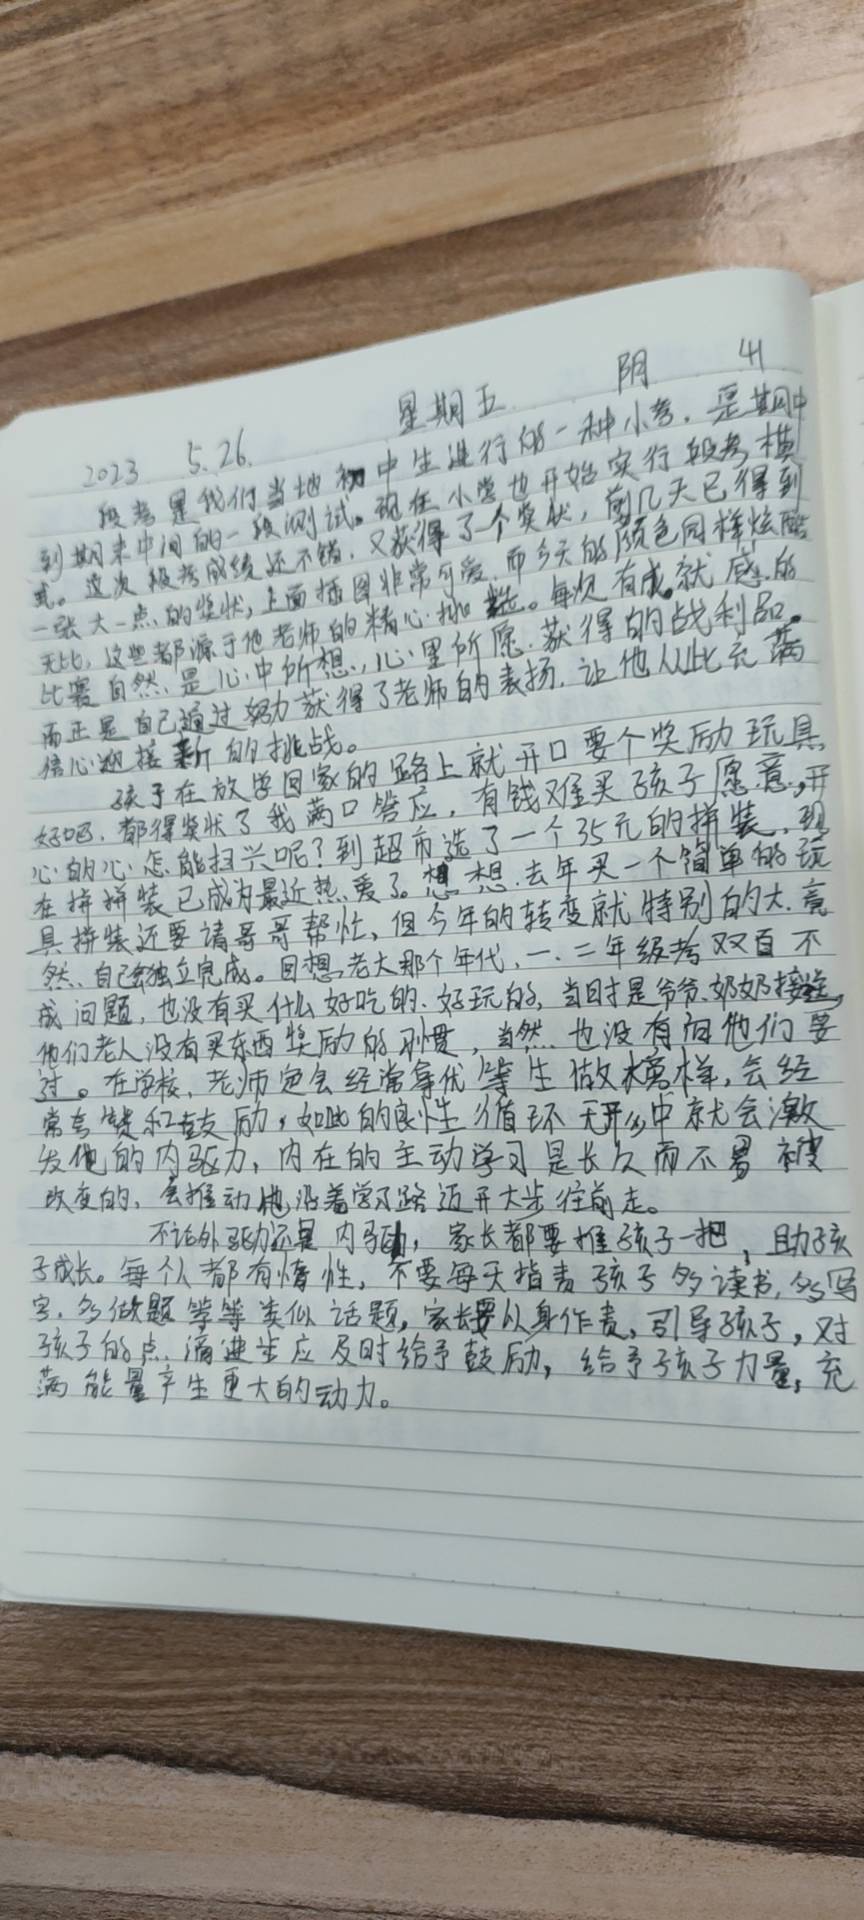 2023 5.26. 星期五 阴 41
段考是我们当地初中生进行的一种小考，是期中
到期末中间的一段测试。现在小学也开始实行段考模
式。这次段考成绩还不错，又获得了一个奖状，前几天已得到
一张大一点的奖状，上面插图非常可爱，而今天的颜色同样炫酷
无比，这些都源于他老师的精心挑选。每次有成就感的
比赛自然是心中所想，心里所愿，获得的战利品。
而正是自己通过努力获得了老师的表扬，让他从此充满
信心迎接新的挑战。
孩子在放学回家的路上就开口要个奖励玩具，
好吧，都得奖状了我满口答应，有钱难买孩子愿意，开
心的心怎能扫兴呢？到超市选了一个35元的拼装，现
在拼拼装已成为最近热爱了。想想去年买一个简单的玩
具拼装还要请哥哥帮忙，但今年的转变就特别的大，竟
然自己独立完成。回想老大那个年代，一、二年级考双百不
成问题，也没有买什么好吃的、好玩的，当时是爷爷、奶奶接送，
他们老人没有买东西奖励的习惯，当然也没有向他们要
过。在学校，老师定会经常拿优等生做榜样，会经
常夸赞和鼓励，如此的良性循环无形中就会激
发他的内驱力，内在的主动学习是长久而不易被
改变的，会推动他沿着学习路迈开大步往前走。
不论外驱动还是内驱动，家长都要推孩子一把，助孩
子成长。每个人都有惰性，不要每天指责孩子多读书，多写
字，多做题等等类似话题，家长要以身作责，引导孩子，对
孩子的点滴进步应及时给予鼓励，给予孩子力量，充
满能量产生更大的动力。